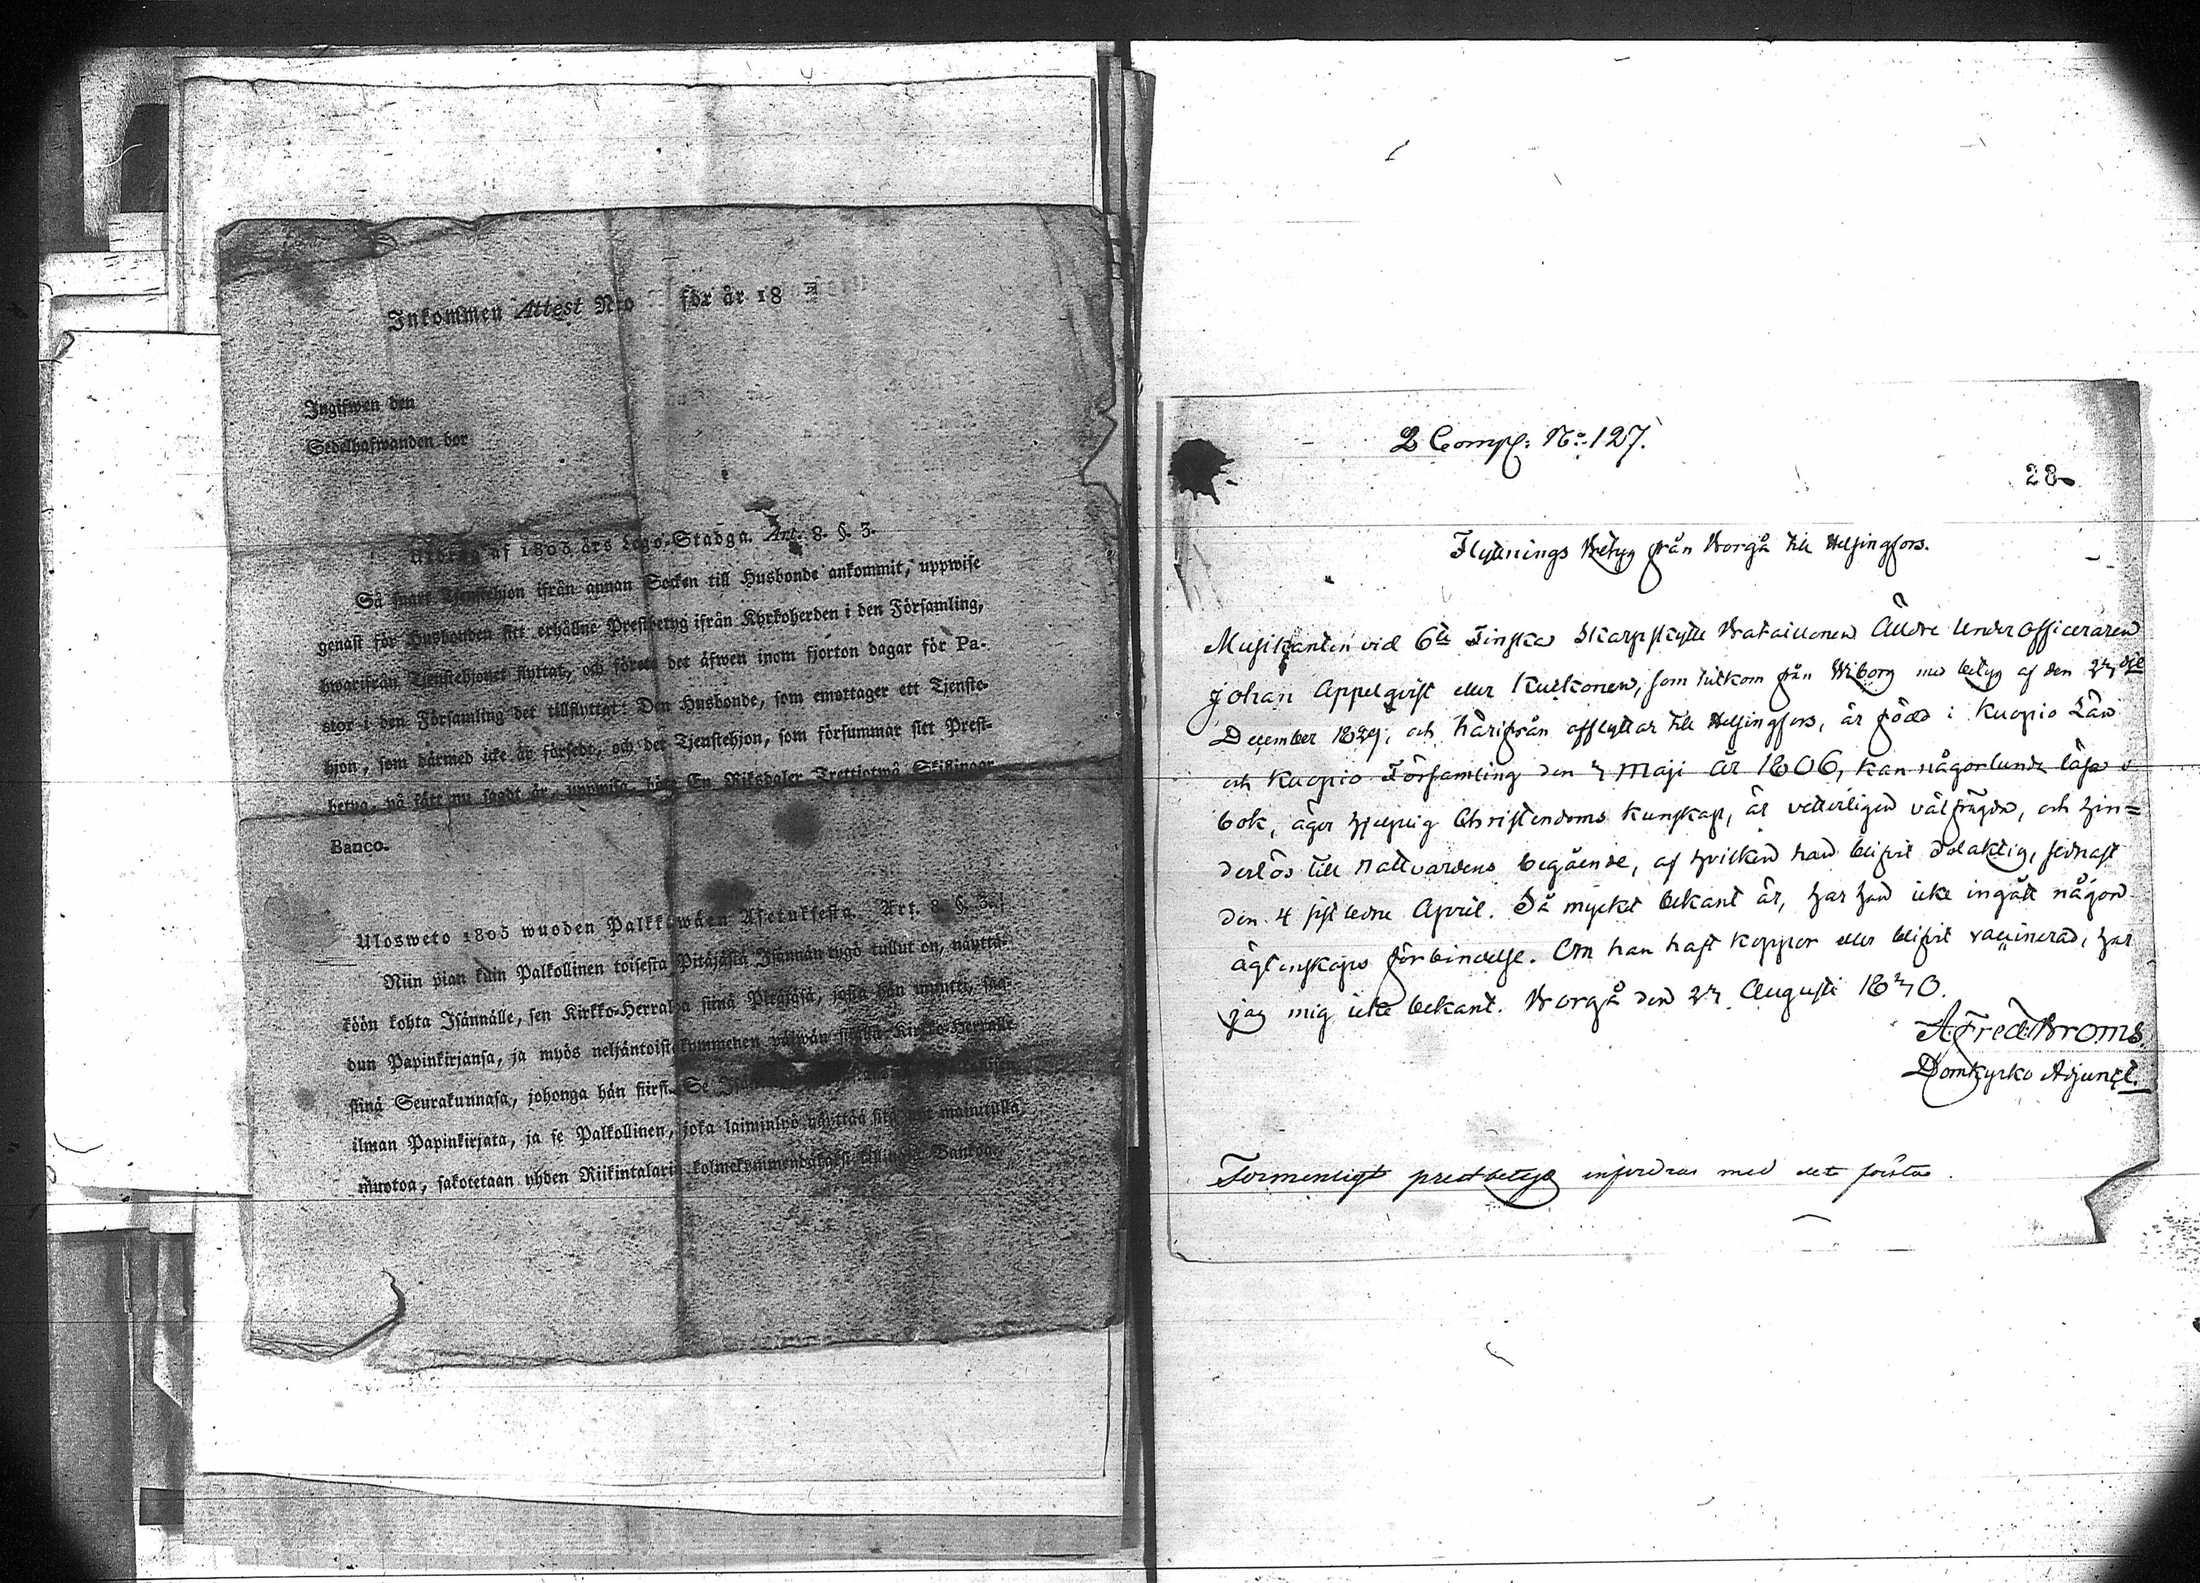 Inkommen Attest N:o för år 18
Ingifwen den
Sedelhafwanden bor
Utdrag af 1805 års Lego-Stadga. Art. 8. §. 3.
Så snart Tjenstehjon ifrån annan Socken till Husbonde ankommit, uppwise
genast för Husbonden sitt erhållne Prestbetyg ifrån Kyrkoherden i den Församling,
hwarifrån Tjenstehjonet flyttat, och förete det äfwen inom fjorton dagar för Pa-
stor i den Församling det tillflyttat: Den Husbonde, som emottager ett Tjenste-
hjon, som därmed icke är försedt, och det Tjenstehjon, som försummar sitt Prest-
betyg, på sätt nu sagdt är, uppwisa, böte En Riksdaler Trettiotwå Skillingar
Banco.
Ulosweto 1805 wuoden Palkkawäen Asetuksesta. Art. 8. §. 3.
Niin pian kuin Palkollinen toisesta Pitäjästä Isännän tygö tullut on, näyttä-
köön kohta Isännälle, sen Kirkko-Herralda siinä Pitäjäsä, josta hän muutti, saa-
dun Papinkirjansa, ja myös neljäntoistakymmenen päiwän sisällä Kirkko-Herralle
siinä Seurakunnasa, johonga hän siirsi. Se
ilman Papinkirjata, ja se Palkollinen, joka laiminlyö näyttää sitä mainitulla
muotoa, sakotetaan yhden Riikintalarin kolmekymmendäkaksi killingiä Bankoa.
2 Comp: No: 127.
28
Flyttnings Betyg från Borgå till Helsingfors.
Musikanten vid 6te Finska Skarpskytte Bataillonen Äldre Underofficeraren
Johan Appelqvist eller Kukkonen, som hitkom från Wiborg med betyg af den
December 1829, och härifrån afflyttar till Helsingfors, är född i Kuopio Län
och Kuopio Församling den Maji år 1806, kan någorlunda läsa i
bok, äger hjelplig Christendoms kunskap, är vetterligen välfrägdad, och hin=
derlös till Nattvardens begående, af hvilken han blifvit delaktig, sednast
den 4 sistledne April. Så mycket bekant är, har han icke ingått någon
ägtenskaps förbindelse. Om han haft koppor eller blifvit vaccinerad, har
jag mig icke bekant. Borgå den Augusti
A. Fred: Broms.
Domkyrko Adjunct.
Formenligt prestbetyg infordras med det första.